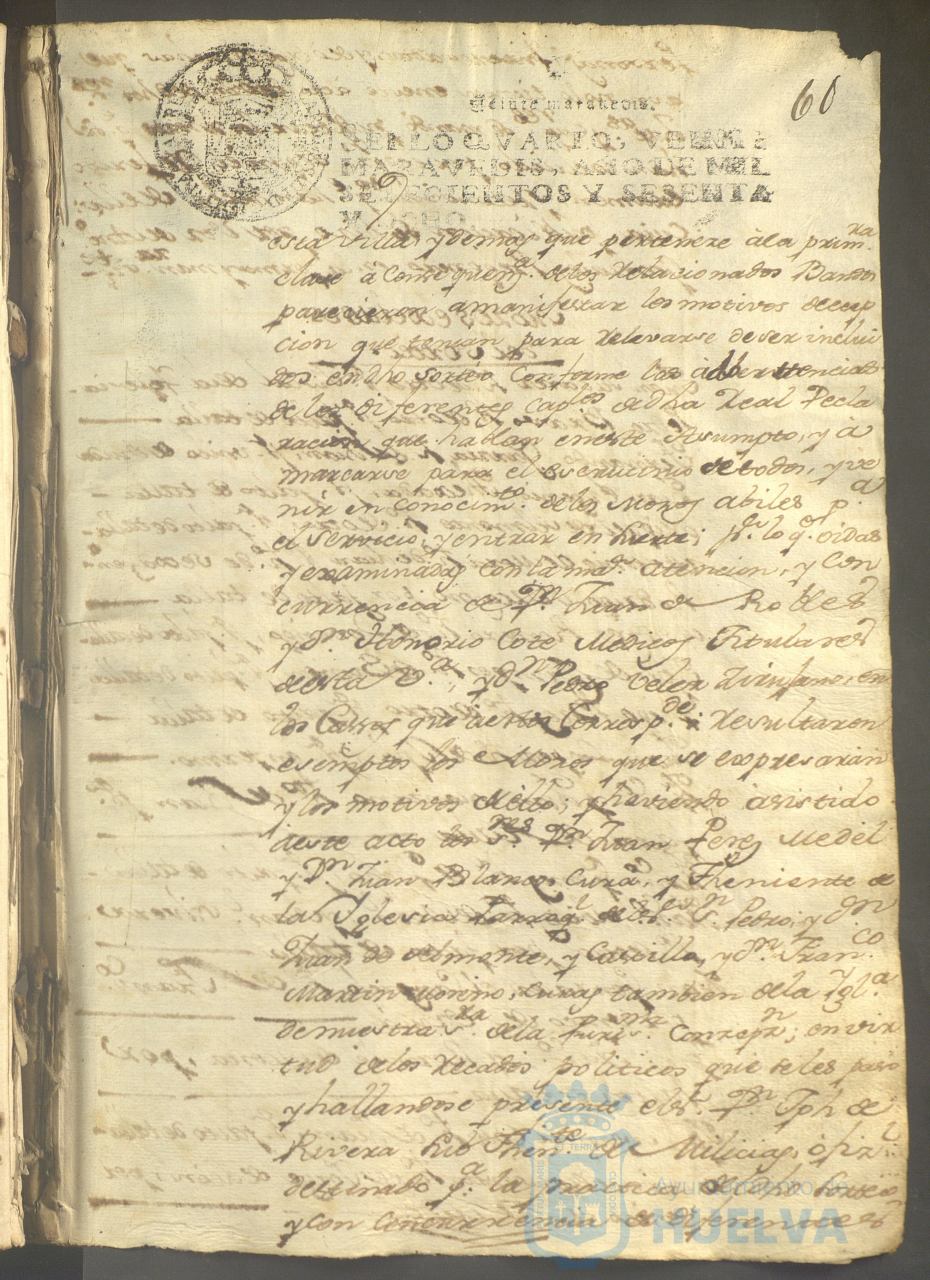 60
Veinte maravedis.
SELLO QVARTO, VEINTE
MARAVEDIS, AÑO DE MIL
SETECIENTOS Y SESENTA
Y OCHO.
esta villa, y demas que pertenece à la prim.ra
clase à Consequen.a de los relacionados Bandos
parecieron a manifestar los motivos de ecep
cion que tenian para relevarse de ser inclui
dos en dho Sorteo Conforme las adbertencias
de los diferentes cap.os de dha Real Decla
racion que hablan en este Asumpto, y à
marcarse para el escrutinio de todos, y ve
nir en conocim.to de los Mozos abiles p.a
el Servicio, y entrar en suerte; p.r lo q.e oidas
y examinadas con la m.r atencion, y Con
currencia de D.n Juan de Robles
y D.n Honorio Cote Medicos Titulares
de esta v.a, y D.n Pedro Velez Zirujano, en
los Casos que à estos Corresp.de; resultaron
esemptos los Mozos que se expresarán
y los motivos de ello; y haviendo asistido
à este acto los S.res D.n Juan Perez Medel
y D.n Juan Blanco, Cura, y Theniente de
la Yglesia Parroq.l de S.r S.n Pedro, y D.n
Juan de Almonte, y Castilla, y D.n Fran.co
Martin Moreno, Curas tambien de la Ygl.a
de nuestra S.ra de la Puris.ma Concepz.n; en vir
tud de los recados politicos que se les pasó
y hallandose presente el S.r D.n Jph de
Rivera Sub Then.te de Milicias, ofiz.l
destinado p.a la practica de dho Sorteo
y con Concurrencia de diferentes
Ayuntamiento de
HUELVA